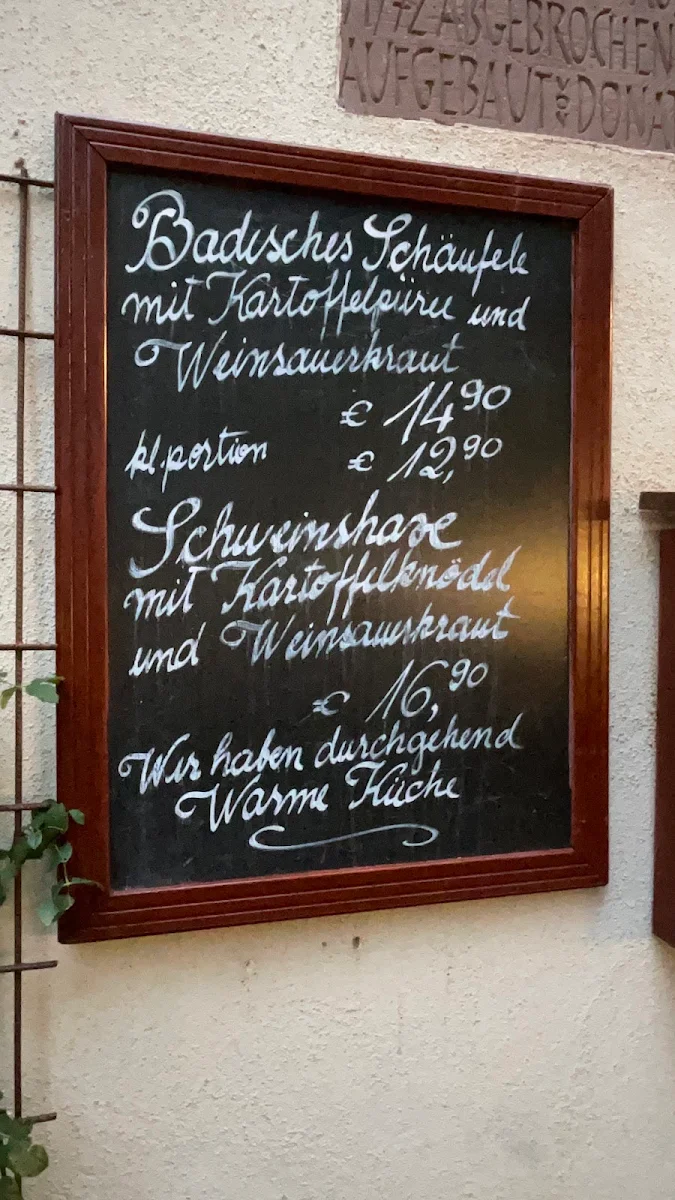 ABGEBROCHEN
AUFGEBAUT VON DONA
Badisches Schäufele
mit Kartoffelpüree und
Weinsauerkraut
€ 14⁹⁰
kl. portion € 12,⁹⁰
Schweinshaxe
mit Kartoffelknödel
und Weinsauerkraut
€ 16,⁹⁰
Wir haben durchgehend
Warme Küche